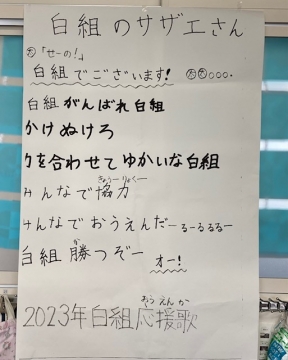 白組のサザエさん
㋟「せーの!」
白組でございます! ㋟㋟○○○・
白組 がんばれ 白組
かけぬけろ
力を合わせて ゆかいな白組
みんなで協力
きょうーりょくー
みんなでおうえんだーるーるるるー
白組 勝つぞー
か
オー!
2023年白組応援歌
おう えん か